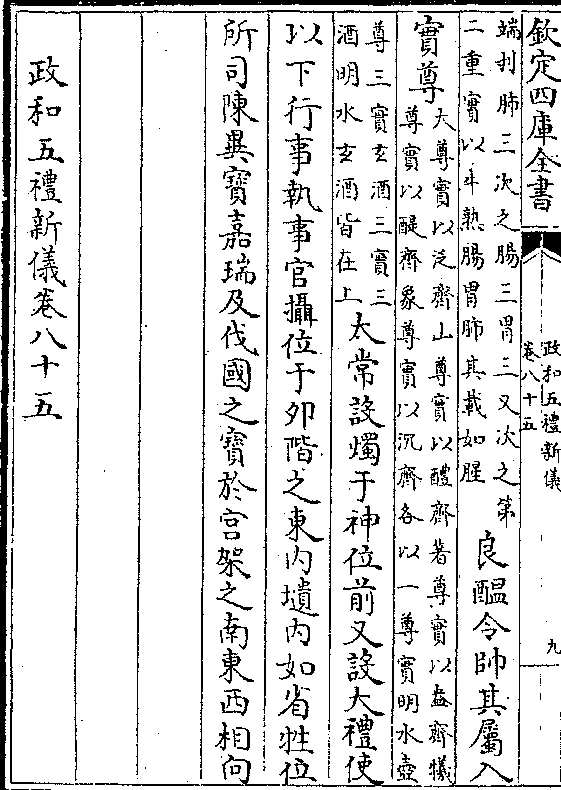 欽定四庫全書
政和五禮新儀
卷八十五
九
端刌肺三次之腸三胃三又次之第
二重實以羊熟腸胃肺其載如腥
良醖令帥其屬入
實尊
大尊實以泛齊山尊實以醴齊著尊實以盎齊犧
尊實以醍齊象尊實以沉齊各以一尊實明水壺
尊三實玄酒三實三
酒明水玄酒皆在上
太常設燭于神位前又設大禮使
以下行事執事官攝位于卯階之東内壝内如省牲位
所司陳異寶嘉瑞及伐國之寶於宫架之南東西相向
政和五禮新儀卷八十五